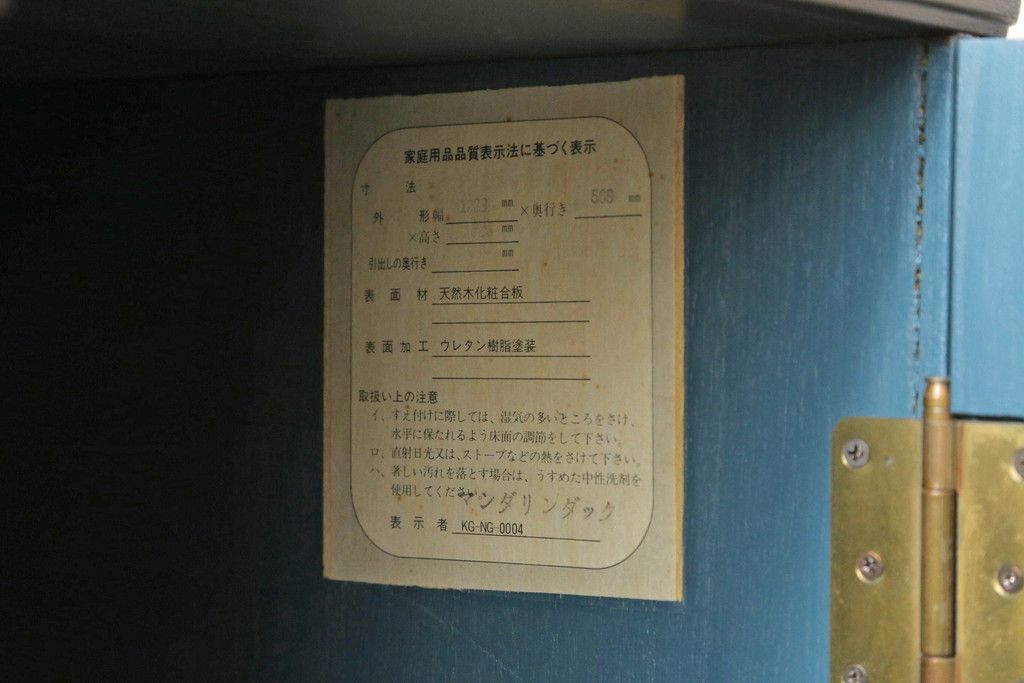 家庭用品品質表示法に基づく表示
寸法
外形幅 mm ×奥行き mm
×高さ mm
引出しの奥行き mm
表面材 天然木化粧合板
表面加工 ウレタン樹脂塗装
取扱い上の注意
イ、すえ付けに際しては、湿気の多いところをさけ、
水平に保たれるよう床面の調節をして下さい。
ロ、直射日光又は、ストーブなどの熱をさけて下さい。
ハ、著しい汚れを落とす場合は、うすめた中性洗剤を
使用してください。
マンダリンダック
表示者 KG-NG-0004